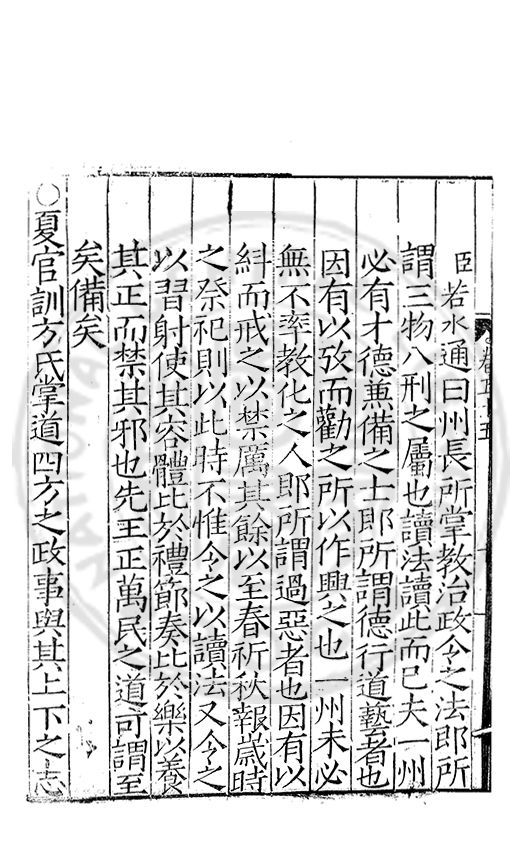 臣若水通曰州長所掌教治政令之法即所
謂三物八刑之屬也讀法讀此而已夫一州
必有才德兼備之士即所謂德行道藝者也
因有以攷而勸之所以作興之也一州未必
無不率教化之人即所謂過惡者也因有以
糾而戒之以禁厲其餘以至春祈秋報歲時
之祭祀則以此時不惟令之以讀法又令之
以習射使其容體比於禮節奏比於樂以養
其正而禁其邪也先王正萬民之道可謂至
矣備矣
〇夏官訓方氏掌道四方之政事與其上下之志